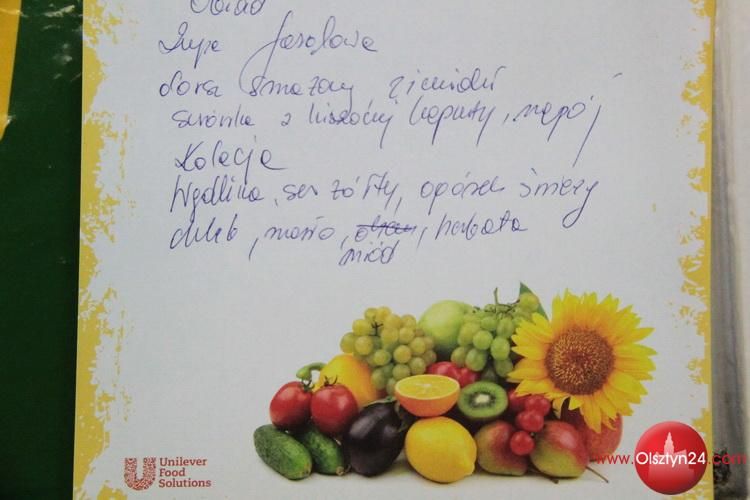 Obiad
Zupa fasolowa
dorsz smażony ziemniaki
surówka z kiszonej kapusty, napój
Kolacja
Wędlina, ser żółty, ogórek świeży
chleb, masło, , herbata
miód
Unilever
Food
Solutions
www.Olsztyn24.com